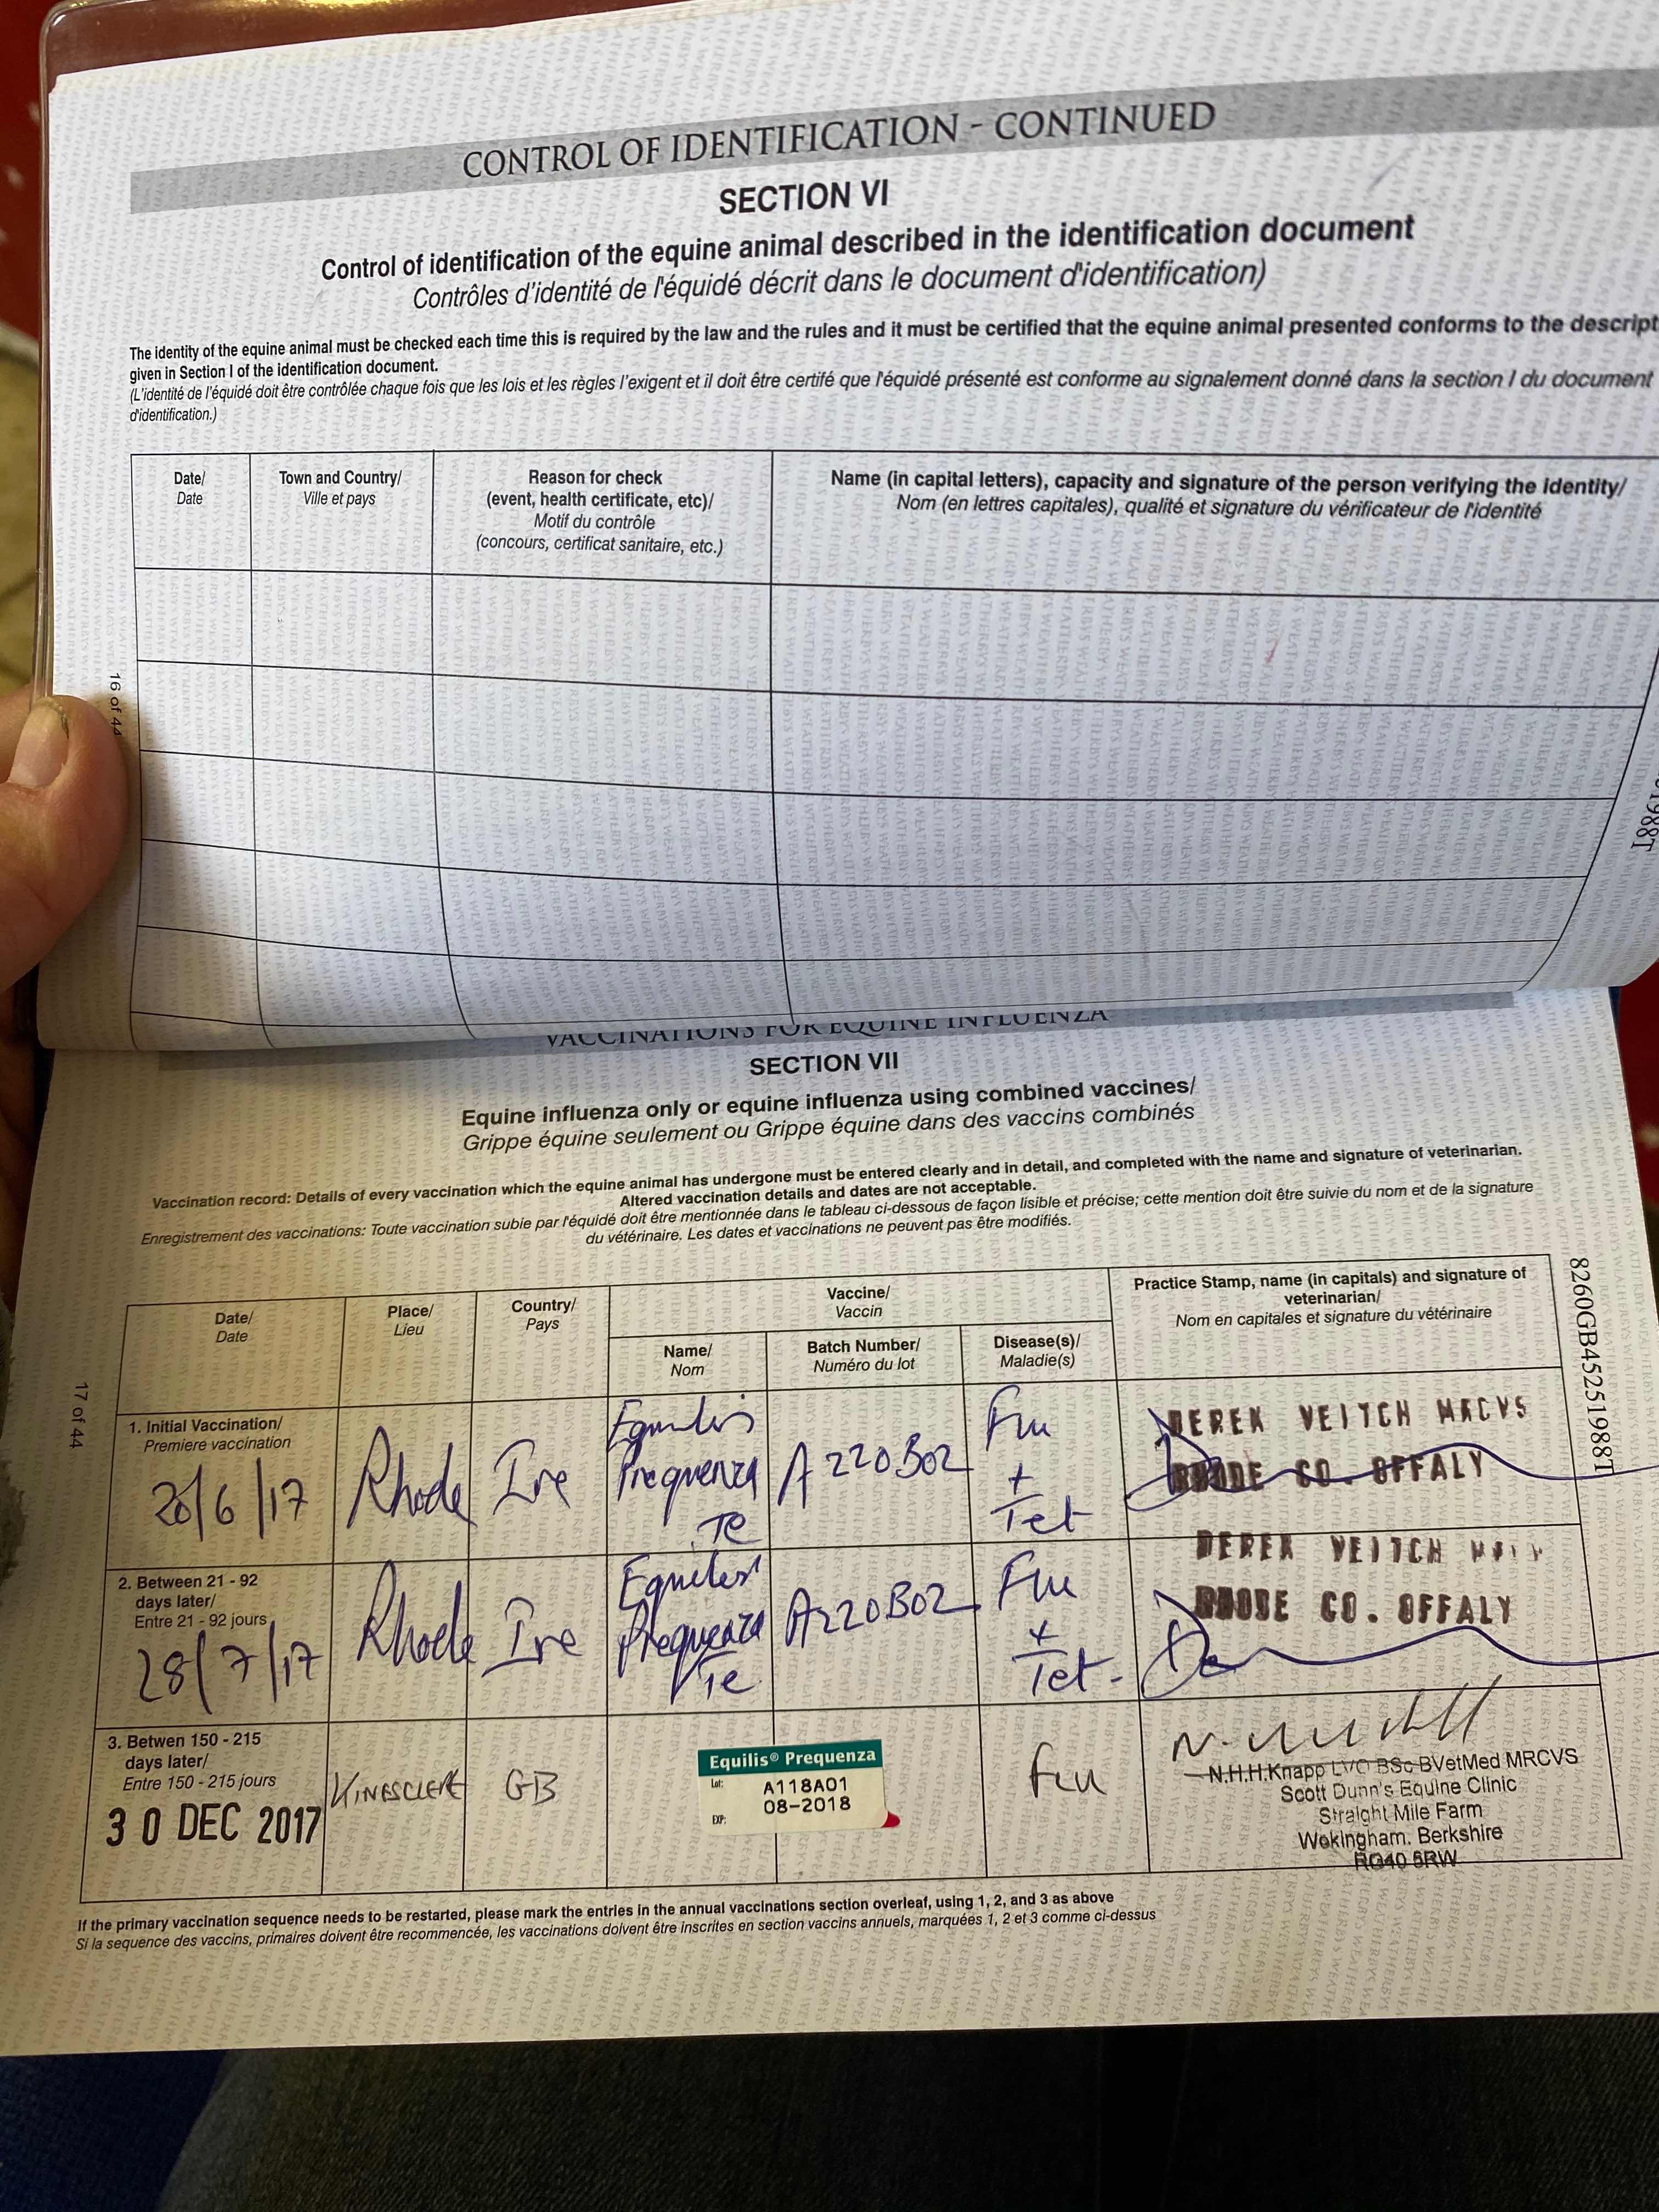 CONTROL OF IDENTIFICATION - CONTINUED
SECTION VI
Control of identification of the equine animal described in the identification document
Contrôles d'identité de l'équidé décrit dans le document d'identification)
The identity of the equine animal must be checked each time this is required by the law and the rules and it must be certified that the equine animal presented conforms to the descript
given in Section I of the identification document.
(L'identité de l'équidé doit être contrôlée chaque fois que les lois et les règles l'exigent et il doit être certifé que l'équidé présenté est conforme au signalement donné dans la section I du document
d'identification.)
Date/
Date
Town and Country/
Ville et pays
Reason for check
(event, health certificate, etc)/
Motif du contrôle
(concours, certificat sanitaire, etc.)
Name (in capital letters), capacity and signature of the person verifying the identity/
Nom (en lettres capitales), qualité et signature du vérificateur de l'identité
16 of 44
1988T
VACCINATIONS FOR EQUINE INFLUENZA
SECTION VII
Equine influenza only or equine influenza using combined vaccines/
Grippe équine seulement ou Grippe équine dans des vaccins combinés
Vaccination record: Details of every vaccination which the equine animal has undergone must be entered clearly and in detail, and completed with the name and signature of veterinarian.
Altered vaccination details and dates are not acceptable.
Enregistrement des vaccinations: Toute vaccination subie par l'équidé doit être mentionnée dans le tableau ci-dessous de façon lisible et précise; cette mention doit être suivie du nom et de la signature
du vétérinaire. Les dates et vaccinations ne peuvent pas être modifiés.
Date/
Date
Place/
Lieu
Country/
Pays
Vaccine/
Vaccin
Name/
Nom
Batch Number/
Numéro du lot
Disease(s)/
Maladie(s)
Practice Stamp, name (in capitals) and signature of
veterinarian/
Nom en capitales et signature du vétérinaire
8260GB45251988T
17 of 44
1. Initial Vaccination/
Premiere vaccination
/6/17
Rhode
Ire
Equilis
Prequenza
Te
A220B02
Flu
+
Tet
DEREK VEITCH MRCVS
RHODE CO. OFFALY
2. Between 21 - 92
days later/
Entre 21 - 92 jours
28/7/17
Rhode
Ire
Equilis
Prequenza
Te
A220B02
Flu
+
Tet
DEREK VEITCH
RHODE CO. OFFALY
3. Betwen 150 - 215
days later/
Entre 150 - 215 jours
30 DEC 2017
KINGSCLERE
GB
Equilis® Prequenza
Lot: A118A01
EXP: 08-2018
Flu
N.H.H.Knapp LVO BSc BVetMed MRCVS
Scott Dunn's Equine Clinic
Straight Mile Farm
Wokingham. Berkshire
RG40 5RW
If the primary vaccination sequence needs to be restarted, please mark the entries in the annual vaccinations section overleaf, using 1, 2, and 3 as above
Si la sequence des vaccins, primaires doivent être recommencée, les vaccinations doivent être inscrites en section vaccins annuels, marquées 1, 2 et 3 comme ci-dessus